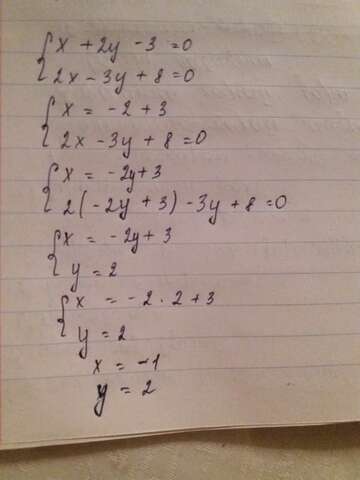 { x + 2y - 3 = 0
2x - 3y + 8 = 0
{ x = - 2 + 3
2x - 3y + 8 = 0
{ x = - 2y + 3
2(-2y + 3) - 3y + 8 = 0
{ x = - 2y + 3
y = 2
{ x = - 2 . 2 + 3
y = 2
x = -1
y = 2